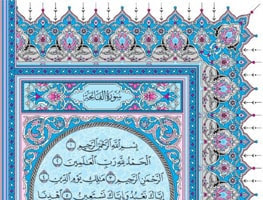 سورة الفاتحة
بسم الله الرحمن الرحيم ١
الحمد لله رب العالمين ٢
الرحمن الرحيم ٣ ملك يوم الدين ٤
إياك نعبد وإياك نستعين ٥ اهدنا